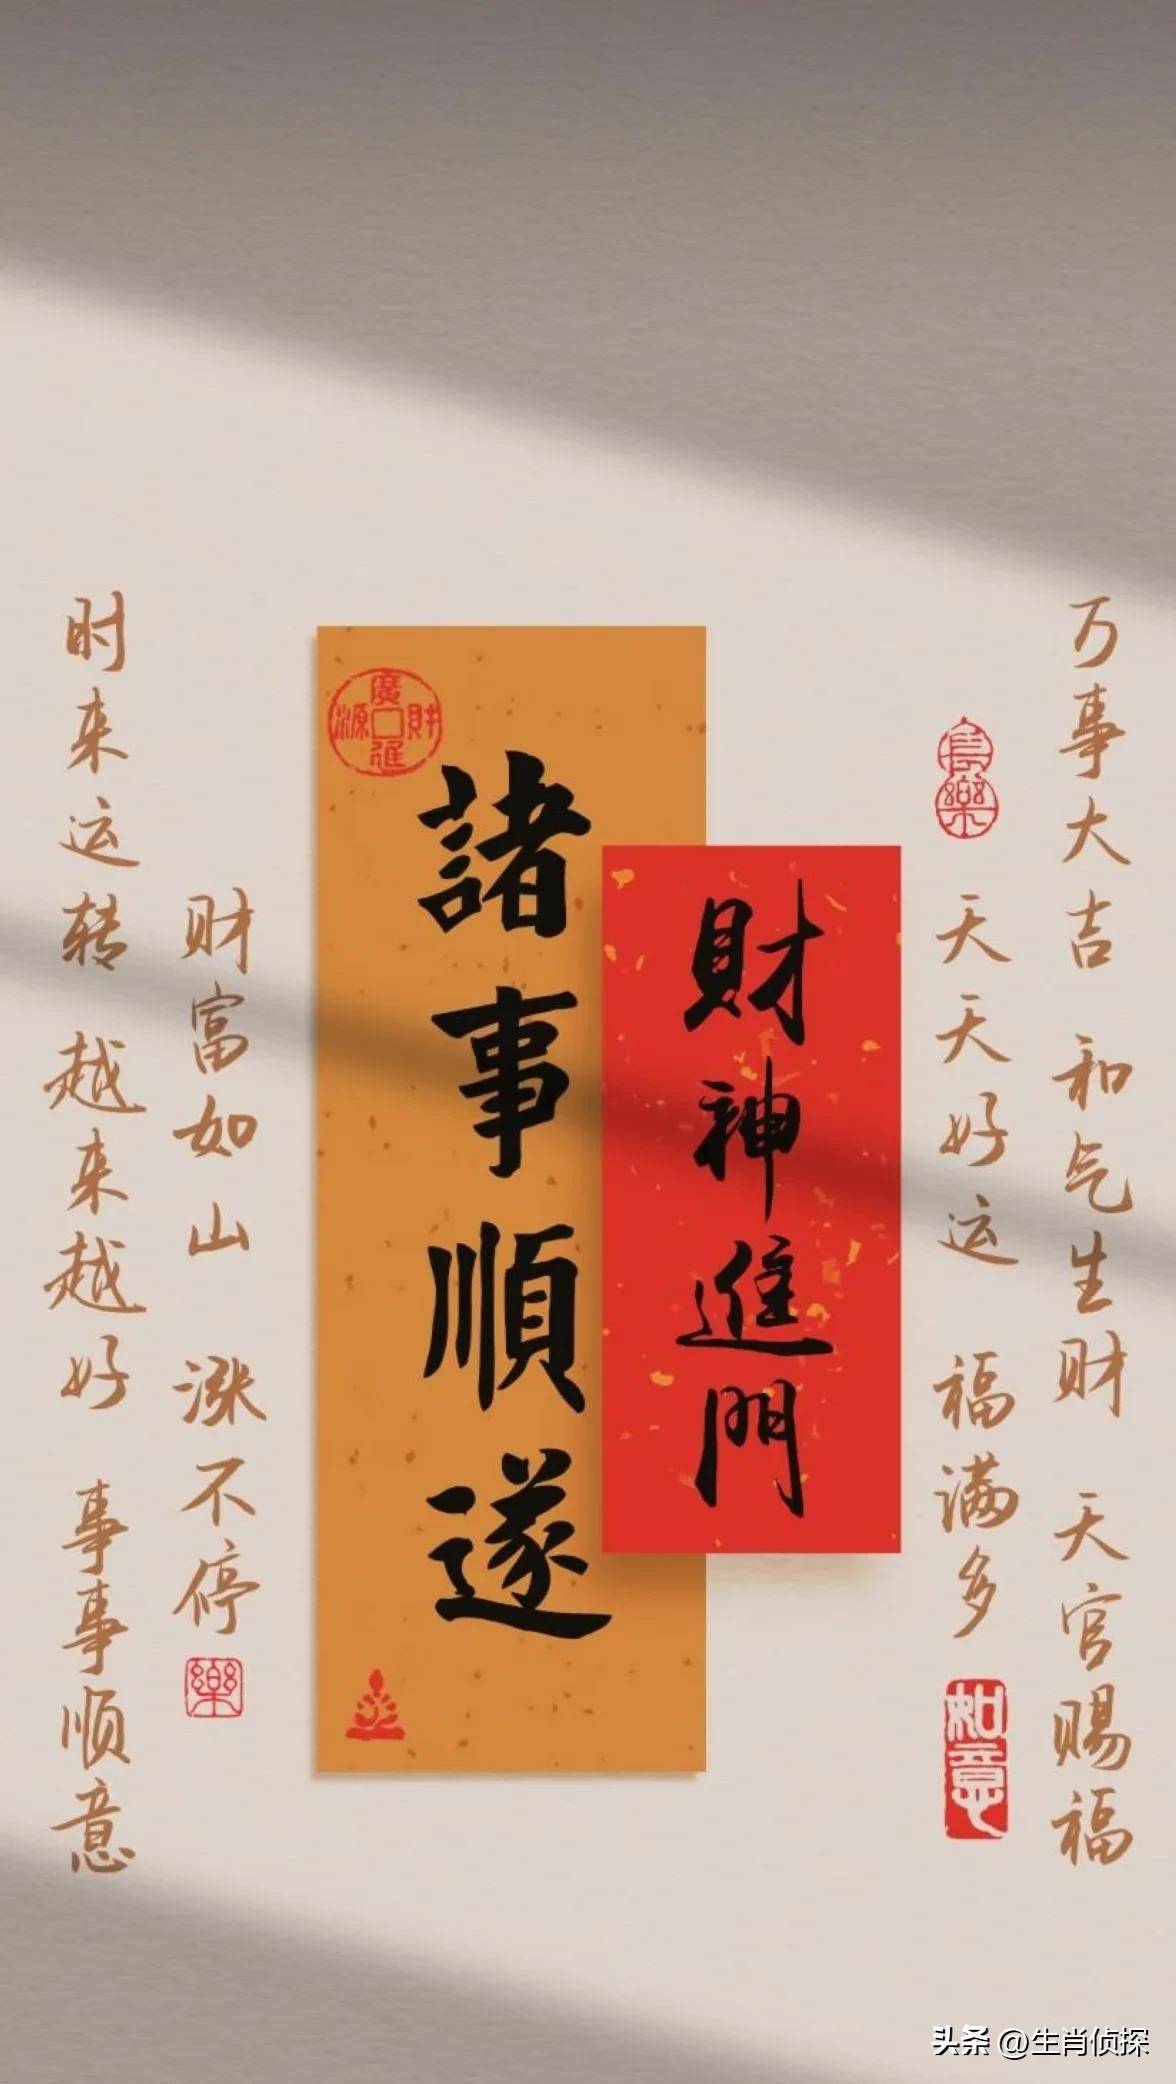 万事大吉 和气生财 天官赐福
天天好运 福满多
如意
財神進門
諸事順遂
廣進財源
财富如山 涨不停
樂
时来运转 越来越好 事事顺意
头条 @生肖侦探